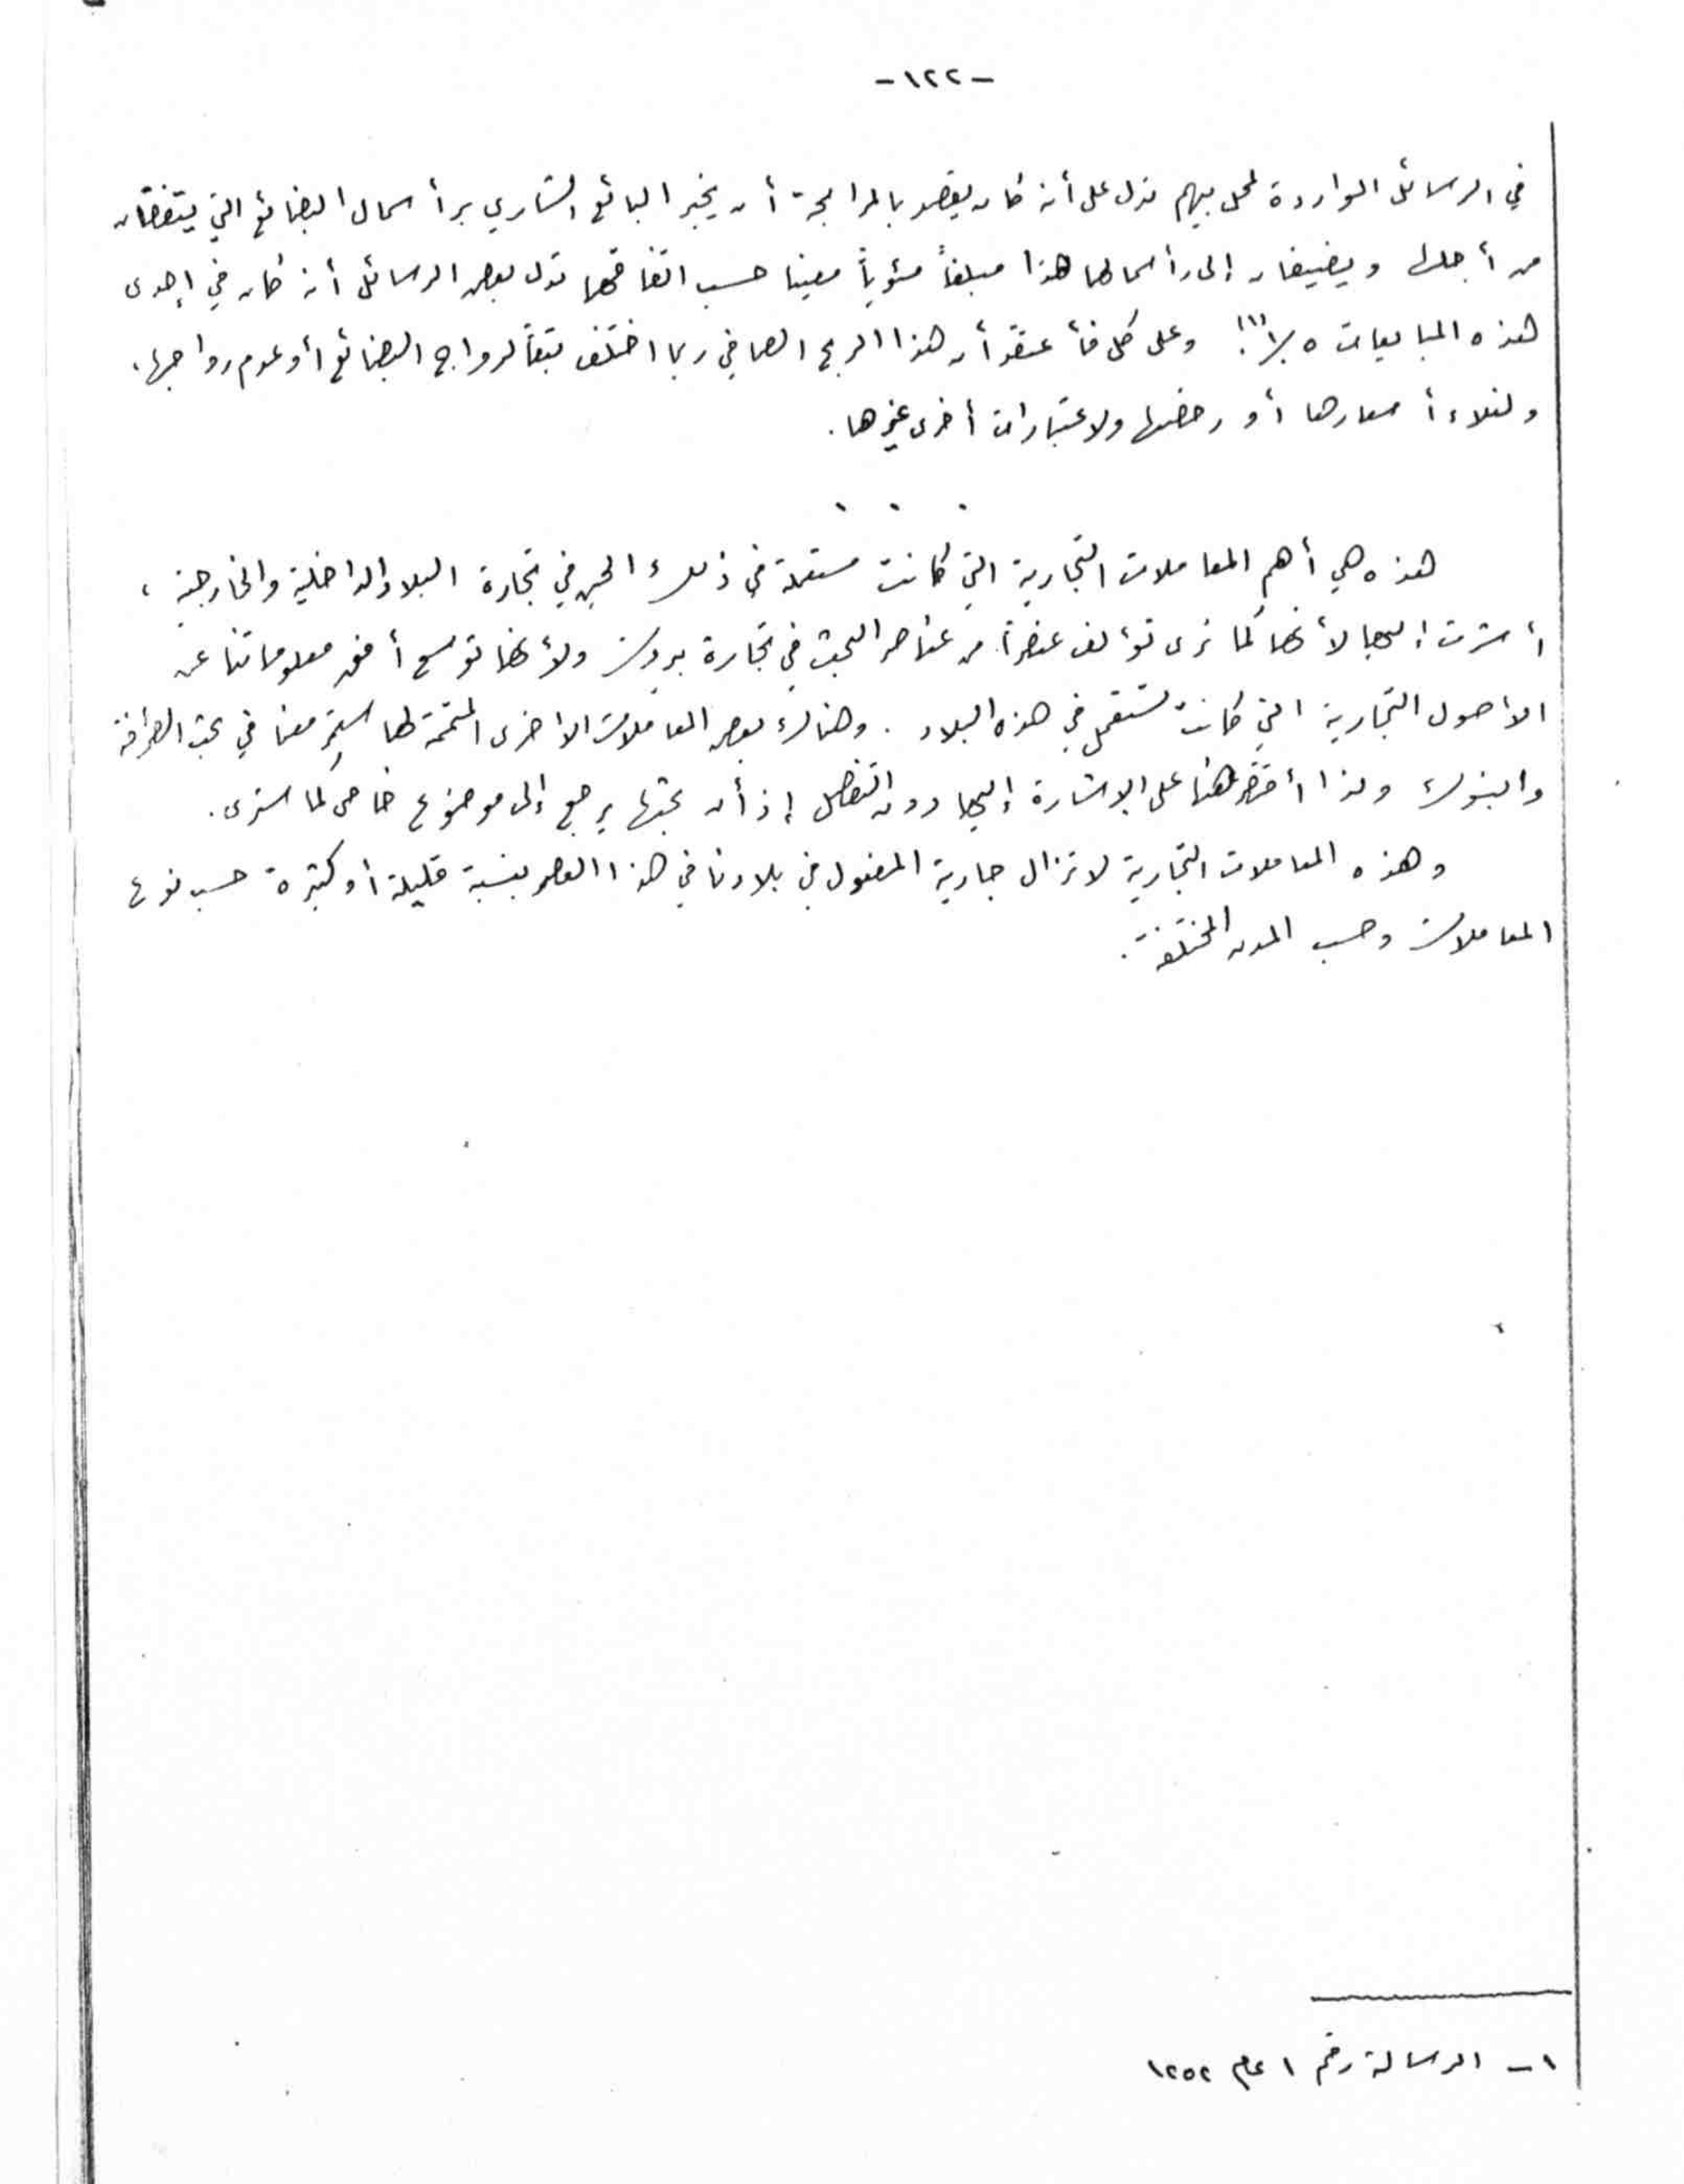 -١٢٢-
في الرسائل الواردة لمحل بيهم تدل على أنه كان يقصد بالمرابحة أن يخبر البائع الشاري برأسمال البضائع التي يتفقان
من أجلها ويضيفان إلى رأسمالها هذا مبلغاً مئوياً معينا حسب اتفاقهما تدل بعض الرسائل أنه كان في إحدى
هذه المبايعات ٥٪(١) وعلى كل فأعتقد أن هذا الربح الصافي ربما اختلف تبعاً لرواج البضائع أو عدم رواجها،
ولغلاء أسعارها أو رخصها ولاعتبارات أخرى غيرها.
. . .
هذه هي أهم المعاملات التجارية التي كانت مستعملة في ذلك الحين في تجارة البلاد الداخلية والخارجية،
أشرت إليها لأنها كما نرى تؤلف عنصراً من عناصر البحث في تجارة بيروت ولأنها توسع أفق معلوماتنا عن
الاصول التجارية التي كانت تستعمل في هذه البلاد. وهنالك بعض المعاملات الاخرى المتممة لها ستمر معنا في بحث الصرافة
والبنوك ولذا أقتصر هنا على الاشارة إليها دون التفصيل إذ أن بحثها يرجع إلى موضوع خاص كما سنرى.
وهذه المعاملات التجارية لا تزال جارية المفعول في بلادنا في هذا العصر بنسبة قليلة أو كثيرة حسب نوع
المعاملات وحسب المدن المختلفة.
١- الرسالة رقم ١ عام ١٢٥٢